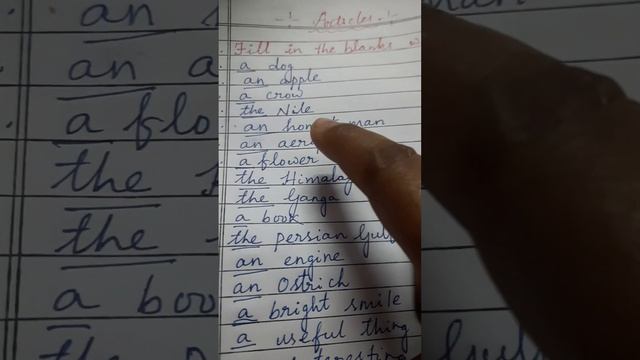 Articles
Fill in the blanks
a dog
an apple
a crow
the Nile
an man
an
a flower
the
the Ganga
a book
the persian Gulf
an engine
an Ostrich
a bright smile
a useful thing